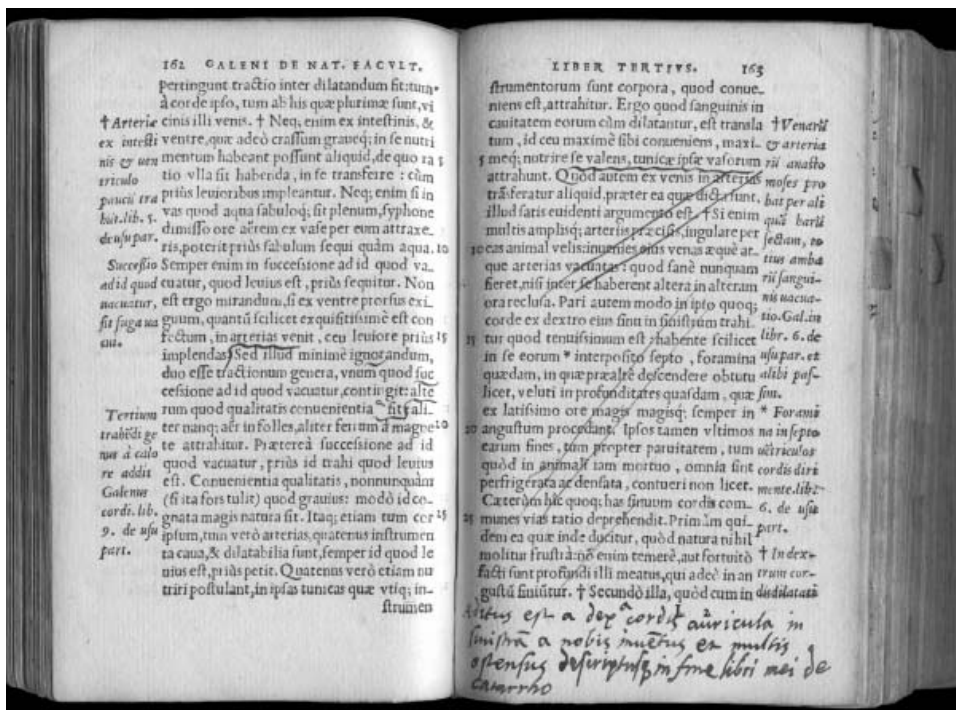 162 GALENI DE NAT. FACVLT.
pertingunt tractio inter dilatandum fit: tum
à corde ipso, tum ab his quæ plurimæ sunt, vi
cinis illi venis. † Neq; enim ex intestinis, &
ventre, quæ adeò crassum graueq; in se nutri
mentum habeant possunt aliquid, de quo ra 5
tio vlla sit habenda, in se transferre: cùm
priùs leuioribus impleantur. Neq; enim si in
vas quod aqua sabuloq; sit plenum, syphone
dimisso ore aërem ex vase per eum attraxe‐
ris, poterit priùs sabulum sequi quàm aqua. 10
Semper enim in successione ad id quod va‐
cuatur, quod leuius est, priùs sequitur. Non
est ergo mirandum, si ex ventre prorsus exi‐
guum, quantũ scilicet exquisitissimè est con
fectum, in arterias venit, ceu leuiore priùs 15
implendas. Sed illud minimè ignorandum,
duo esse tractionum genera, vnum quod suc
cessione ad id quod vacuatur, contingit: alte
rum quod qualitatis conuenientia fit: ali‐
ter nanq; aër in folles, aliter ferrum à magne 20
te attrahitur. Prætereà successione ad id
quod vacuatur, priùs id trahi quod leuius
est. Conuenientia qualitatis, nonnunquàm
(si ita fors tulit) quod grauius: modò id co‐
gnata magis natura sit. Itaq; etiam tum cor 25
ipsum, tum verò arterias, quatenus instrumen
ta caua, & dilatabilia sunt, semper id quod le
uius est, priùs petit. Quatenus verò etiam nu
triri postulant, in ipsas tunicas quæ vtiq; in‐
strumen
† Arteriæ
ex intesti
nis & uen
triculo
paucũ tra
hũt. lib. 5.
de usu par.
Successio
ad id quod
uacuatur,
fit fuga ua
cui.
Tertium
trahẽdi ge
nus à calo
re addit
Galenus
cordi. lib.
9. de usu
part.
LIBER TERTIVS. 163
strumentorum sunt corpora, quod conue‐
niens est, attrahitur. Ergo quod sanguinis in
cauitatem eorum cùm dilatantur, est transla
tum, id ceu maximè sibi conueniens, maxi‐
5 meq; nutrire se valens, tunicæ ipsæ vasorum
attrahunt. Quòd autem ex venis in arterias
trãsferatur aliquid, præter ea quæ dicta sunt.
illud satis euidenti argumento est. † Si enim
multis amplisq; arteriis præcisis, iugulare per
10 eas animal velis: inuenies eius venas æquè at‐
que arterias vacuatas: quod sanè nunquam
fieret, nisi inter se haberent altera in alterum
ora reclusa. Pari autem modo in ipso quoq;
corde ex dextro eius sinu in sinistrum trahi‐
15 tur quod tenuissimum est: habente scilicet
in se eorum * interposito septo, foramina
quædam, in quæ præaltè descendere obtutu
licet, veluti in profunditates quasdam, quæ
ex latissimo ore magis magisq; semper in
20 angustum procedant. Ipsos tamen vltimos
earum fines, tum propter paruitatem, tum
quòd in animali iam mortuo, omnia sint
perfrigerata ac densata, contueri non licet.
Cæterùm hîc quoq; has sinuum cordis com‐
25 munes vias ratio deprehendit. Primùm qui‐
dem ea quæ inde ducitur, quòd natura nihil
molitur frustrà: nõ enim temerè, aut fortuitò
facti sunt profundi illi meatus, qui adeò in an
gustũ finiũtur. † Secundò illa, quòd cum in
† Venarũ
& arteria
rũ anasto
moses pro
bat per ali
quã
sectam, to
tius amba
rũ sangui‐
nis uacua‐
tio. Gal. in
libr. 6. de
usu par. et
alibi pas‐
sim.
* Forami
na in septo
uẽtriculos
cordis diri
mente. lib.
6. de usu
part.
† Index
trum cor‐
dis dilatati
Aditus est a dex^a cordis auricula in
sinistrã a nobis inuẽtus et multis
ostensus descriptusq; in fine libri mei de
catarrho